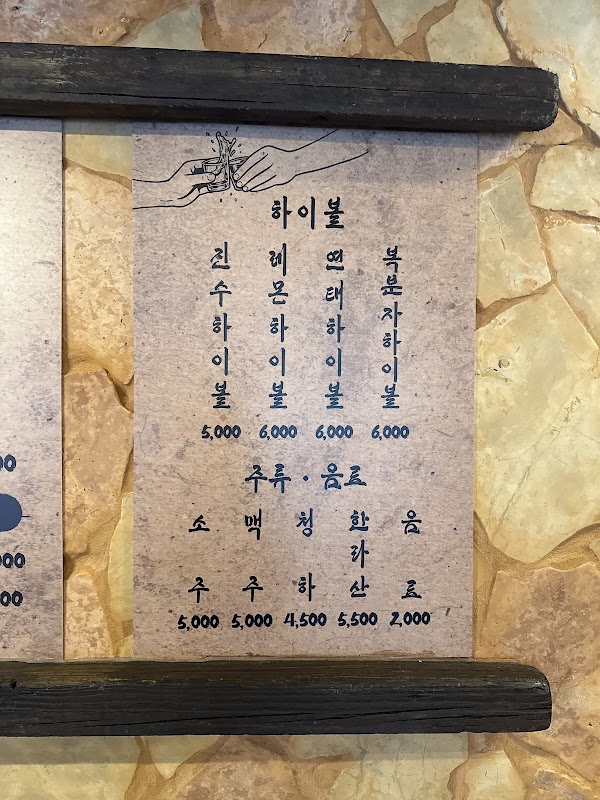 하이볼
진수하이볼
레몬하이볼
연태하이볼
복분자하이볼
5,000 6,000 6,000 6,000
주류 · 음료
소주
맥주
청하
한라산
음료
5,000 5,000 4,500 5,500 2,000